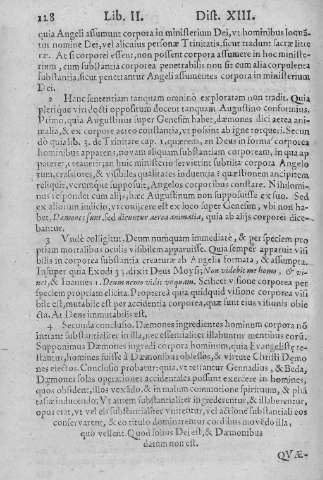 128 Lib. II. Dist. XIII.
quia Angeli assumunt corpora in ministerium Dei, vt hominibus loquā-
tur nomine Dei, vel alicuius personæ Trinitatis, sicut tradunt sacræ litte-
ræ. At si corporei essent, non possent corpora assumere in hoc ministe-
rium, cum substantia corporea penetrabilis non sit cum alia corpulenta
substantia, sicut penetrantur Angeli assumentes corpora in ministerium
Dei.
2 Hanc sententiam tanquam omnino exploratam non tradit. Quia
plerique viri docti oppositum docent tanquam Augustino conforme.
Primo, quia Augustinus super Genesim habet, dæmones dici aerea ani-
malia, & ex corpore aereo constantia, vt possint ab igne torqueri. Secun
do quia lib. 3. de Trinitate cap. 1. quærens, an Deus in forma corporea
hominibus apparens, nouam aliquam substantiam corpoream, in qua ap
pareret, crearet: an huic ministerio seruirent subtilia corpora Angelo
rum, crassiores, & visibiles qualitates induentia? quæstionem ancipitem
reliquit, verumque supposuit, Angelos corporibus constare. Nihilomi-
nus respondet cum alijs, hæc Augustinum non supposuisse ex suo. Sed
ex aliorum iudicio, vt conijcere est ex loco super Genesim, vbi non ha-
bet. Dæmones sunt, sed dicuntur aerea animalia, quia ab alijs corporei dice-
bantur.
3 Vnde colligitur. Deum numquam immediatè, & per speciem pro
priam mortalibus oculis visibilem apparuisse. Quia semper apparuit visi
bilis in corporea substantia creaturæ ab Angelis formata, & assumpta.
Insuper quia Exodi 33. dixit Deus Moysi; Non videbit me homo, & vi-
uet, & Ioannes 1. Deum nemo vidit vnquam. Scilicet visione corporea per
speciem propriam elicita. Propterea quia quidquid visione corporea visi
bile est, mutabile est per accidentia corporea, quæ sunt eius visionis obie
cta. At Deus immutabilis est.
4 Secunda conclusio. Dæmones ingredientes hominum corpora nō
intrant substantialiter in illa, nec essentialiter illabuntur mentibus eorū.
Supponimus Dæmones ingredi corpora hominum, quia Euangelistæ te-
stantur, homines fuisse à Dæmonibus obsessos, & virtute Christi Dæmo
nes eiectos. Conclusio probatur: quia, vt testantur Gennadius, & Beda,
Dæmones solas operationes accidentales possunt exercere in homines,
quos obsident, illos vexādo, & in malum commotione spirituum, & phā
tasiæ inducendo. Vt autem substantialiter ingrederentur, & illaberentur,
opus erat, vt vel eis substantialiter vnirentur, vel actione substantiali eos
conseruarent, & eo titulo dominarentur cordibus mouēdo illa,
quo vellent. Quod solius Dei est, & Dæmonibus
datum non est.
QVÆ-